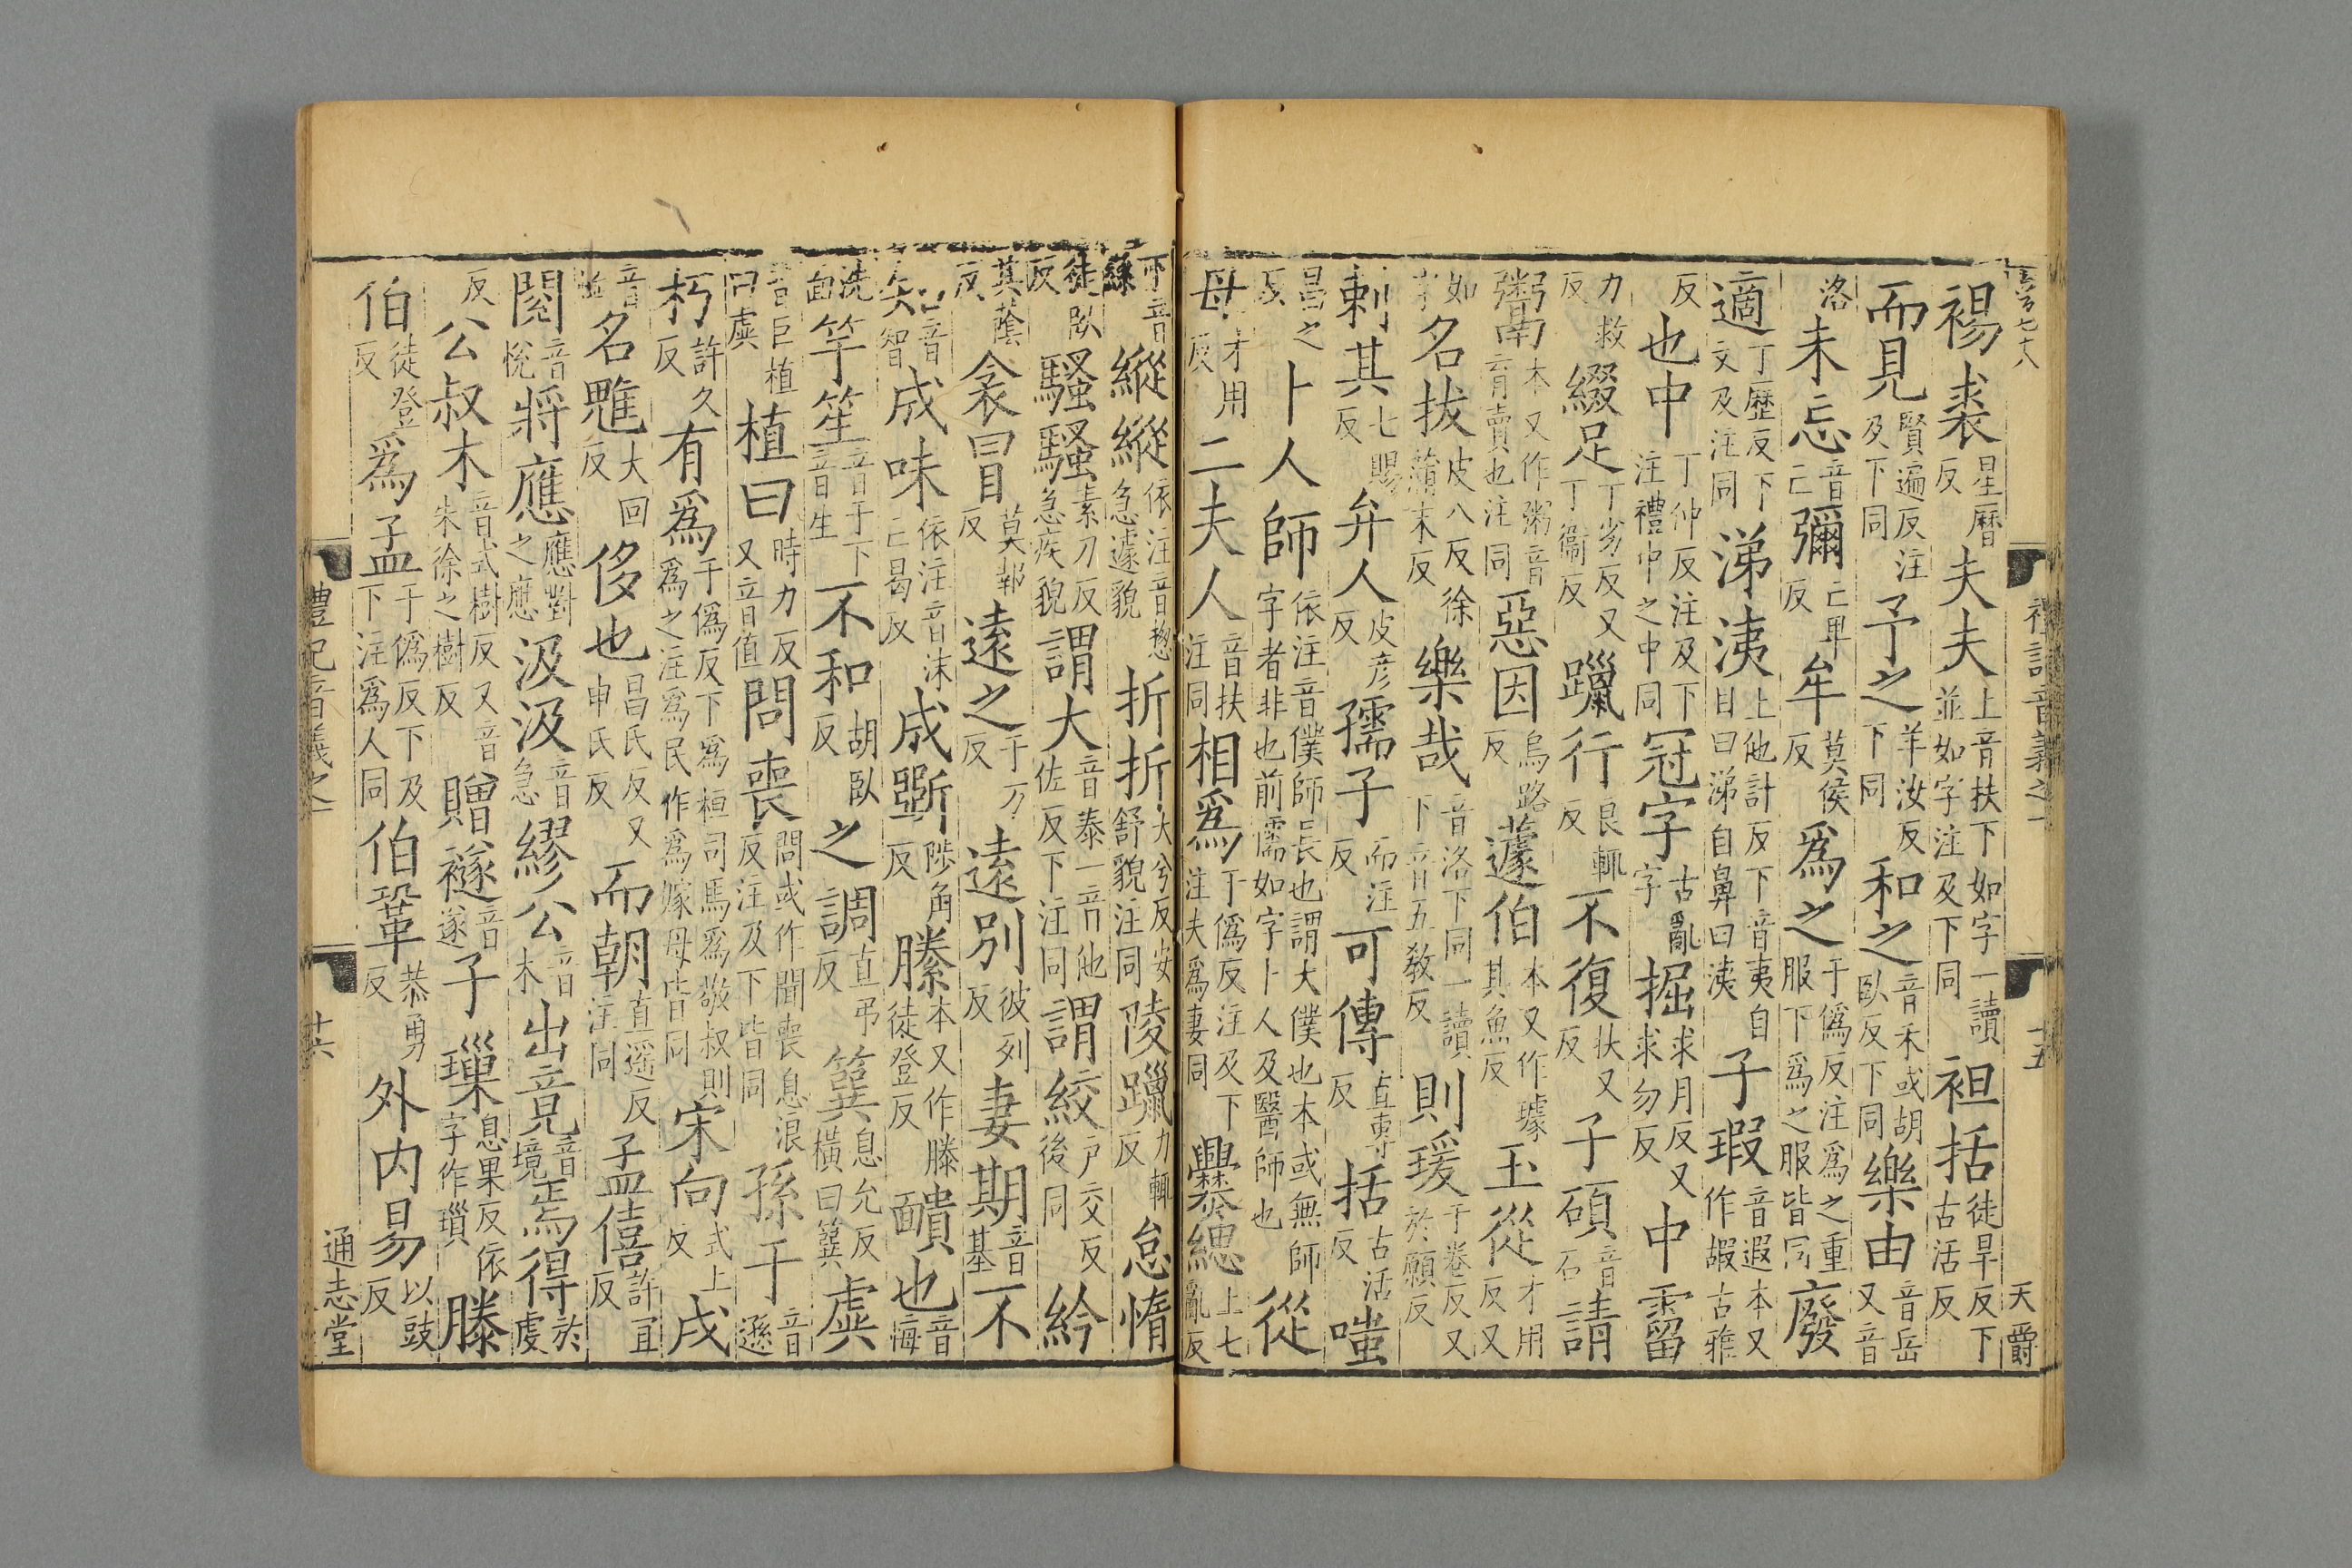 天爵
禮記音義之一
十五
裼裘星曆反夫夫上音扶下如字一讀並如字注及下同袒括徒旱反下古活反
而見賢遍反注及下同予之羊汝反下同和之音禾或胡臥反下同樂由音岳又音
洛未忘音亡彌亡卑反牟莫侯反爲之于僞反注爲之重服下爲之服皆同廢
適丁歷反下文及注同涕洟上他計反下音夷自目曰涕自鼻曰洟子瑕音遐本又作嘏古雅
反也中丁仲反注及下注禮中之中同冠字古亂字掘求月反又求勿反中霤
力救反綴足丁劣反又丁衞反躐行良輒反不復扶又反子碩音石請
鬻本又作粥音育賣也注同惡因烏路反蘧伯本又作璩其魚反玉從才用反又
如字名拔皮八反徐蒲末反樂哉音洛下同一讀下音五教反則瑗于眷反又於願反
剌其七賜反弁人皮彥反孺子而注反可傳直專反括古活反嗤
昌之反卜人師依注音僕師長也謂大僕也本或無師字者非也前儒如字卜人及醫師也從
母才用反二夫人音扶注同相爲于僞反注及下注夫爲妻同爨緦上七亂反
下音縱縱依注音揔急遽貌折折大兮反安舒貌注同陵躐力輒反怠惰
徒臥反騷騷素刀反急疾貌謂大音泰一音他佐反下注同謂絞戶交反後同紟
其蔭反衾冒莫報反遠之于万反遠別彼列反妻期音基不
知音智成味依注音沬亡曷反成斲陟角反縢本又作滕徒登反靧也音悔
洗面竽笙音于下音生不和胡臥反之調直弔反簨息允反橫曰簨虡
音巨植曰虡植曰時力反又音值問喪問或作聞喪息浪反注及下皆同孫于音遜
朽許久反有爲于僞反下爲桓司馬爲敬叔則爲之注爲民作爲嫁母皆同宋向式上反戌
音名魋大回反侈也昌氏反又申氏反而朝直遥反注同孟僖許宜反
閱音悅將應應對之應汲汲音急繆公音木出竟音境焉得於虔
反公叔木音式樹反又音朱徐之樹反贈襚音遂子璅息果反依字作瑣滕
伯徒登反爲孟于僞反下及下注爲人同伯鞏恭勇反外内易以豉反
禮記音義之一
十六
通志堂